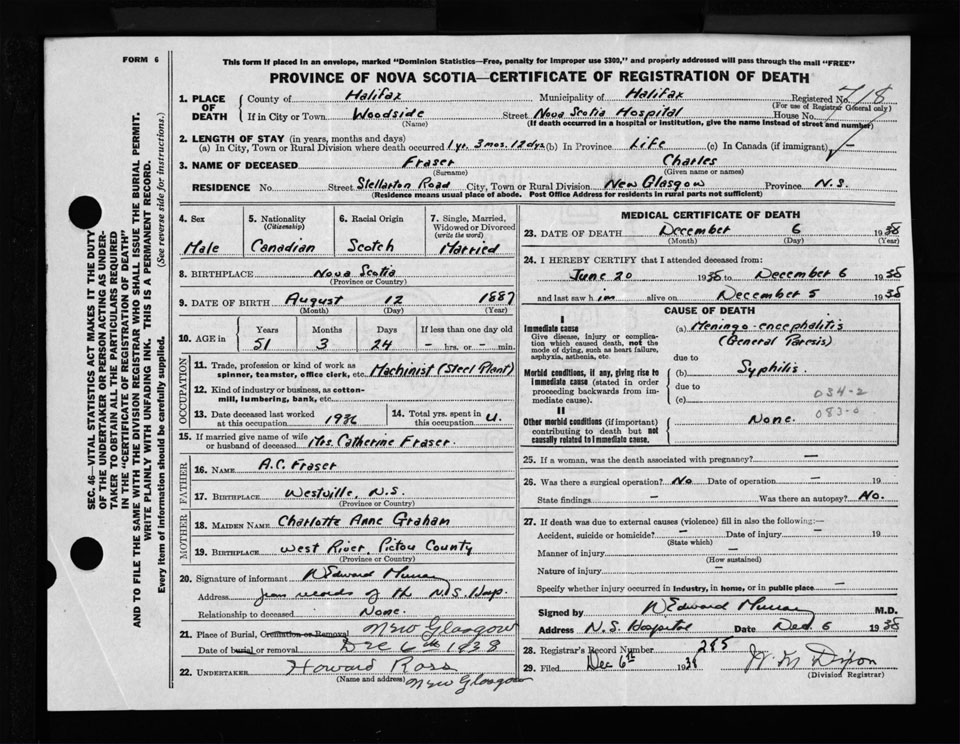 FORM 6
This form if placed in an envelope, marked "Dominion Statistics—Free, penalty for improper use $300," and properly addressed will pass through the mail "FREE"
PROVINCE OF NOVA SCOTIA—CERTIFICATE OF REGISTRATION OF DEATH
1. PLACE OF DEATH
County of Halifax Municipality of Halifax Registered No. 718
(For use of Registrar General only)
If in City or Town. Woodside Street Nova Scotia Hospital House No.
(Name) (If death occurred in a hospital or institution, give the name instead of street and number)
2. LENGTH OF STAY (in years, months and days)
(a) In City, Town or Rural Division where death occurred 1 yr. 3 mos. 12 dys (b) In Province Life (c) In Canada (if immigrant) —
3. NAME OF DECEASED Fraser Charles
(Surname) (Given name or names)
RESIDENCE No. Street Stellarton Road City, Town or Rural Division New Glasgow Province N.S.
(Residence means usual place of abode. Post Office Address for residents in rural parts not sufficient)
4. Sex
Male
5. Nationality
(Citizenship)
Canadian
6. Racial Origin
Scotch
7. Single, Married, Widowed or Divorced
(write the word)
Married
8. BIRTHPLACE Nova Scotia
(Province or Country)
9. DATE OF BIRTH August 12 1887
(Month) (Day) (Year)
10. AGE in
Years Months Days If less than one day old
51 3 24 – hrs. or – min.
OCCUPATION
11. Trade, profession or kind of work as spinner, teamster, office clerk, etc. Machinist (Steel Plant)
12. Kind of industry or business, as cotton-mill, lumbering, bank, etc.
13. Date deceased last worked at this occupation 1936
14. Total yrs. spent in this occupation U.
15. If married give name of wife or husband of deceased Mrs. Catherine Fraser.
FATHER
16. NAME A.C. Fraser
17. BIRTHPLACE Westville, N.S.
(Province or Country)
MOTHER
18. MAIDEN NAME Charlotte Anne Graham
19. BIRTHPLACE West River, Pictou County
(Province or Country)
20. Signature of informant W Edward Murray
Address from records of the N.S. Hosp.
Relationship to deceased None.
21. Place of Burial, Cremation or Removal New Glasgow
Date of burial or removal Dec 6th 1938
22. UNDERTAKER Howard Ross
(Name and address) New Glasgow
MEDICAL CERTIFICATE OF DEATH
23. DATE OF DEATH December 6 1938
(Month) (Day) (Year)
24. I HEREBY CERTIFY that I attended deceased from:
June 20 1938 to December 6 1938
and last saw him alive on December 5 1938
CAUSE OF DEATH
I
Immediate cause
Give disease, injury or complication which caused death, not the mode of dying, such as heart failure, asphyxia, asthenia, etc.
(a) Meningo-encephalitis
(General Paresis)
due to
Morbid conditions, if any, giving rise to immediate cause (stated in order proceeding backwards from immediate cause).
(b) Syphilis.
due to
(c)
034-2
083-0
II
Other morbid conditions (if important) contributing to death but not causally related to immediate cause.
None.
25. If a woman, was the death associated with pregnancy? —
26. Was there a surgical operation? No Date of operation — 19
State findings — Was there an autopsy? No.
27. If death was due to external causes (violence) fill in also the following:—
Accident, suicide or homicide? — Date of injury — 19
(State which)
Manner of injury —
(How sustained)
Nature of injury —
Specify whether injury occurred in industry, in home, or in public place —
Signed by W Edward Murray M.D.
Address N.S. Hospital Date Dec. 6 1938
28. Registrar's Record Number 285
29. Filed Dec 6th 1938 W Dixon
(Division Registrar)
SEC. 46—VITAL STATISTICS ACT MAKES IT THE DUTY OF THE UNDERTAKER OR PERSON ACTING AS UNDERTAKER TO OBTAIN ALL THE PARTICULARS REQUIRED IN THE "CERTIFICATE OF REGISTRATION OF DEATH"
AND TO FILE THE SAME WITH THE DIVISION REGISTRAR WHO SHALL ISSUE THE BURIAL PERMIT.
WRITE PLAINLY WITH UNFADING INK. THIS IS A PERMANENT RECORD.
Every item of information should be carefully supplied. (See reverse side for instructions.)